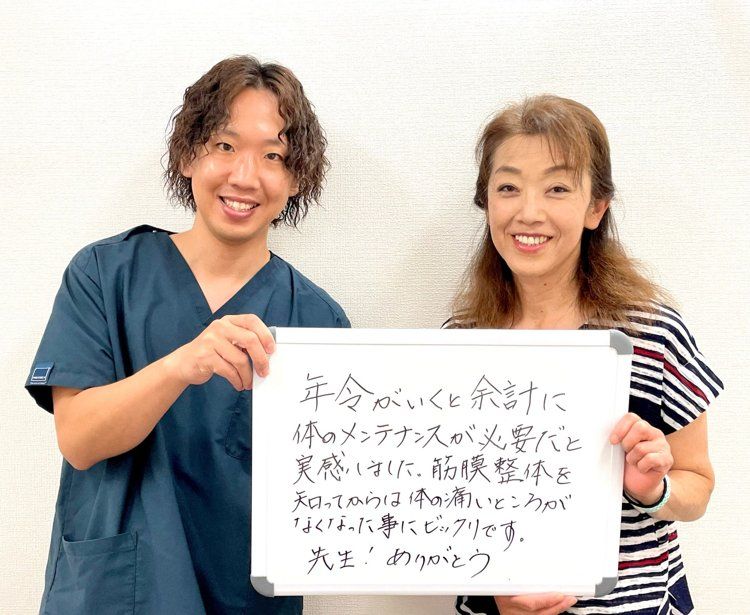 年令がいくと余計に
体のメンテナンスが必要だと
実感しました。筋膜整体を
知ってからは体の痛いところが
なくなった事にビックリです。
先生！ありがとう